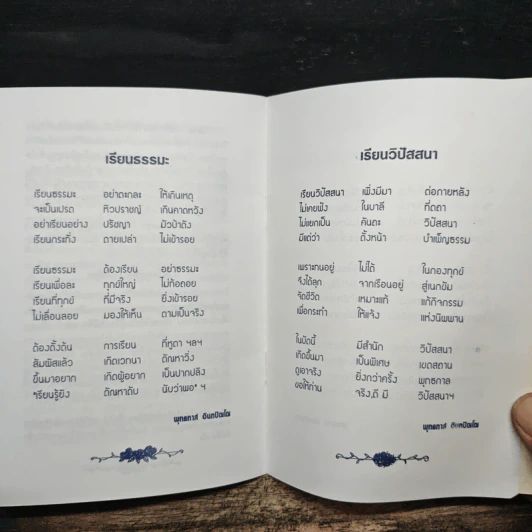 เรียนธรรมะ
เรียนธรรมะ อย่าตะกละ ให้เกินเหตุ
จะเป็นเปรต หิวปราชญ์ เกินคาดหวัง
อย่าเรียนอย่าง ปรัชญา มัวบ้าดัง
เรียนกระทั่ง ตายเปล่า ไม่เข้ารอย
เรียนธรรมะ ต้องเรียน อย่างธรรมะ
เรียนเพื่อละ ทุกข์ใหญ่ ไม่ท้อถอย
เรียนที่ทุกข์ ที่มีจริง ยิ่งเข้ารอย
ไม่เลื่อนลอย มองให้เห็น ตามเป็นจริง
ต้องตั้งต้น การเรียน ที่หูตา ฯลฯ
สัมผัสแล้ว เกิดเวทนา ตัณหาวิ่ง
ขึ้นมาอยาก เกิดผู้อยาก เป็นปากปลิง
"เรียนรู้ยิ่ง ตัณหาดับ นับว่าพอ" ฯ
พุทธทาส อินทปัญโญ
เรียนวิปัสสนา
เรียนวิปัสสนา เพิ่งมีมา ต่อภายหลัง
ไม่เคยฟัง ในบาลี ที่ตถา
ไม่แยกเป็น คันถะ วิปัสสนา
มีแต่ว่า ตั้งหน้า บำเพ็ญธรรม
เพราะทนอยู่ ไม่ได้ ในกองทุกข์
จึงได้ลุก จากเรือนอยู่ สู่เนกขัม
จัดชีวิต เหมาะแท้ แก้กิจกรรม
เพื่อกระทำ ให้แจ้ง แห่งนิพพาน
ในบัดนี้ มีสำนัก วิปัสสนา
เกิดขึ้นมา เป็นพิเศษ เขตสถาน
ดูเอาจริง ยิ่งกว่าครั้ง พุทธกาล
ขอให้ท่าน จริง,ดี มี วิปัสสนาฯ
พุทธทาส อินทปัญโญ